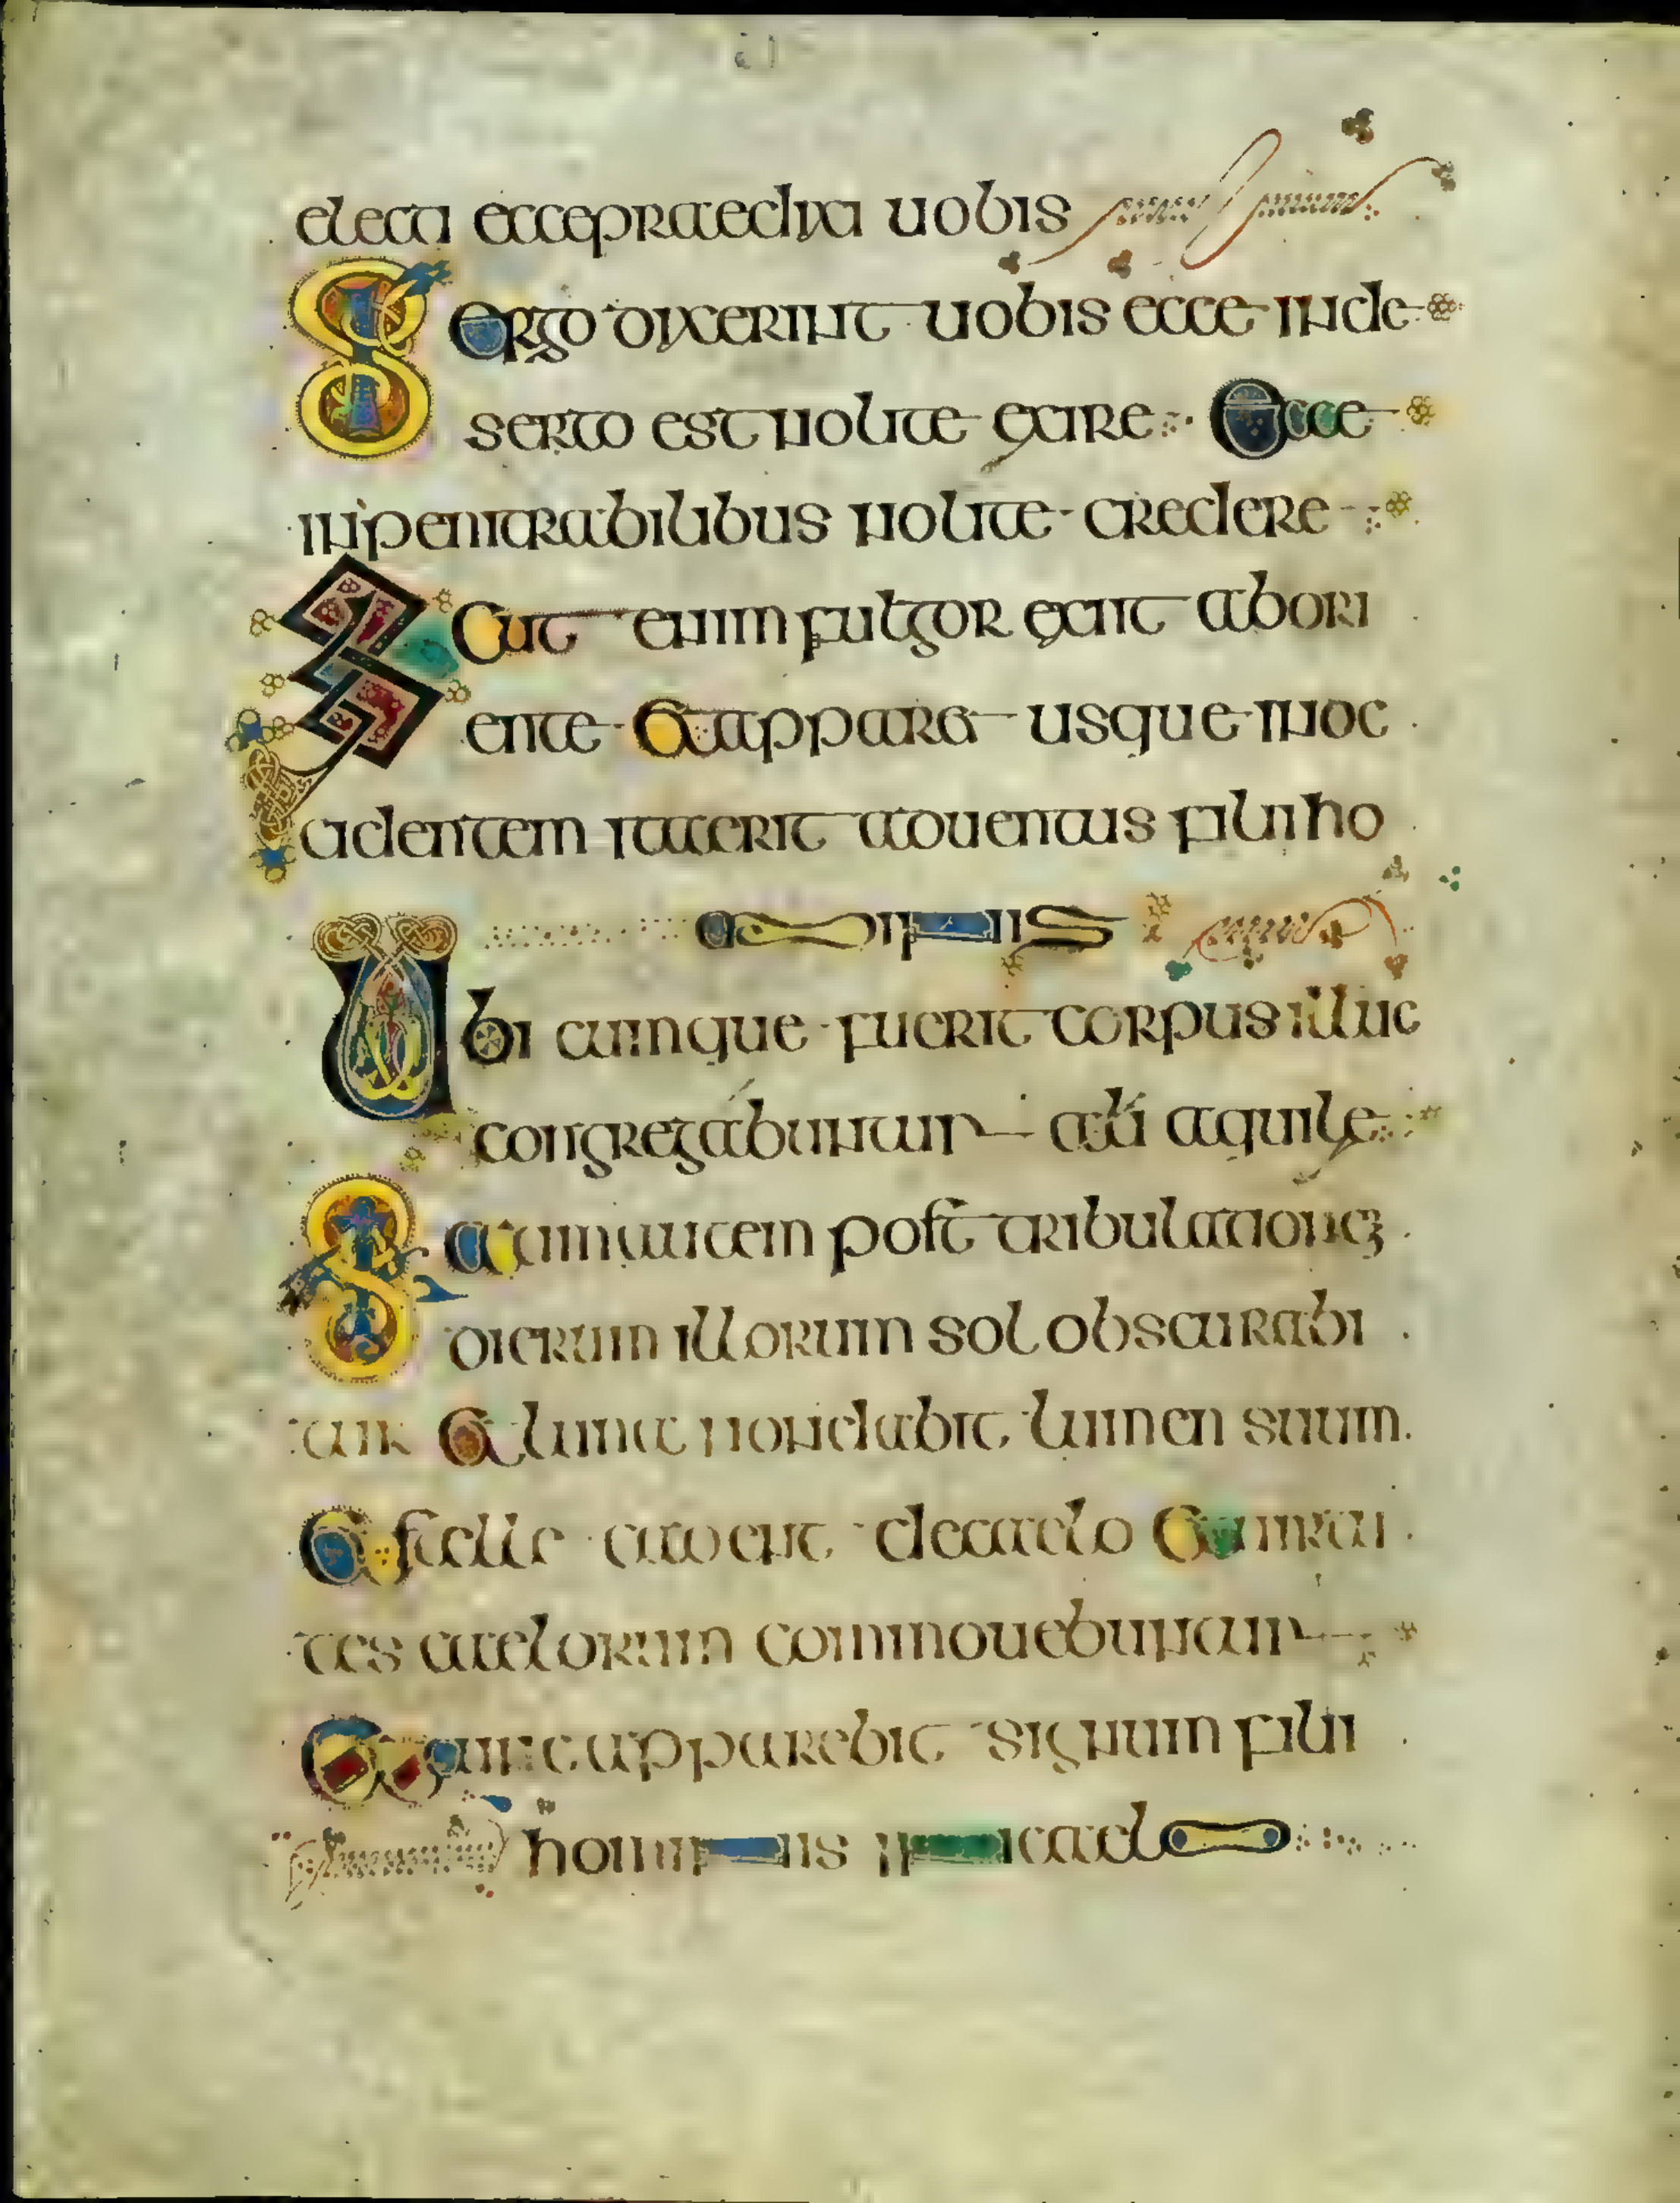 electi ecce praedixi uobis
Si ergo dixerint uobis ecce inde
serto est nolite exire Ecce
in penitrabilibus nolite credere
Sicut enim fulgor exiit ab ori
ente et apparet usque in oc
cidentem ita erit aduentus filii ho
minis
Ubi cumque fuerit corpus illuc
congregabuntur et illi aquile
Statim autem post tribulationē
dierum illorum sol obscurabi
tur et luna non dabit lumen suum
et stelle cadent de caelo et uirtu
tes caelorum commouebuntur
Et tunc apparebit signum filii
hominis in caelo